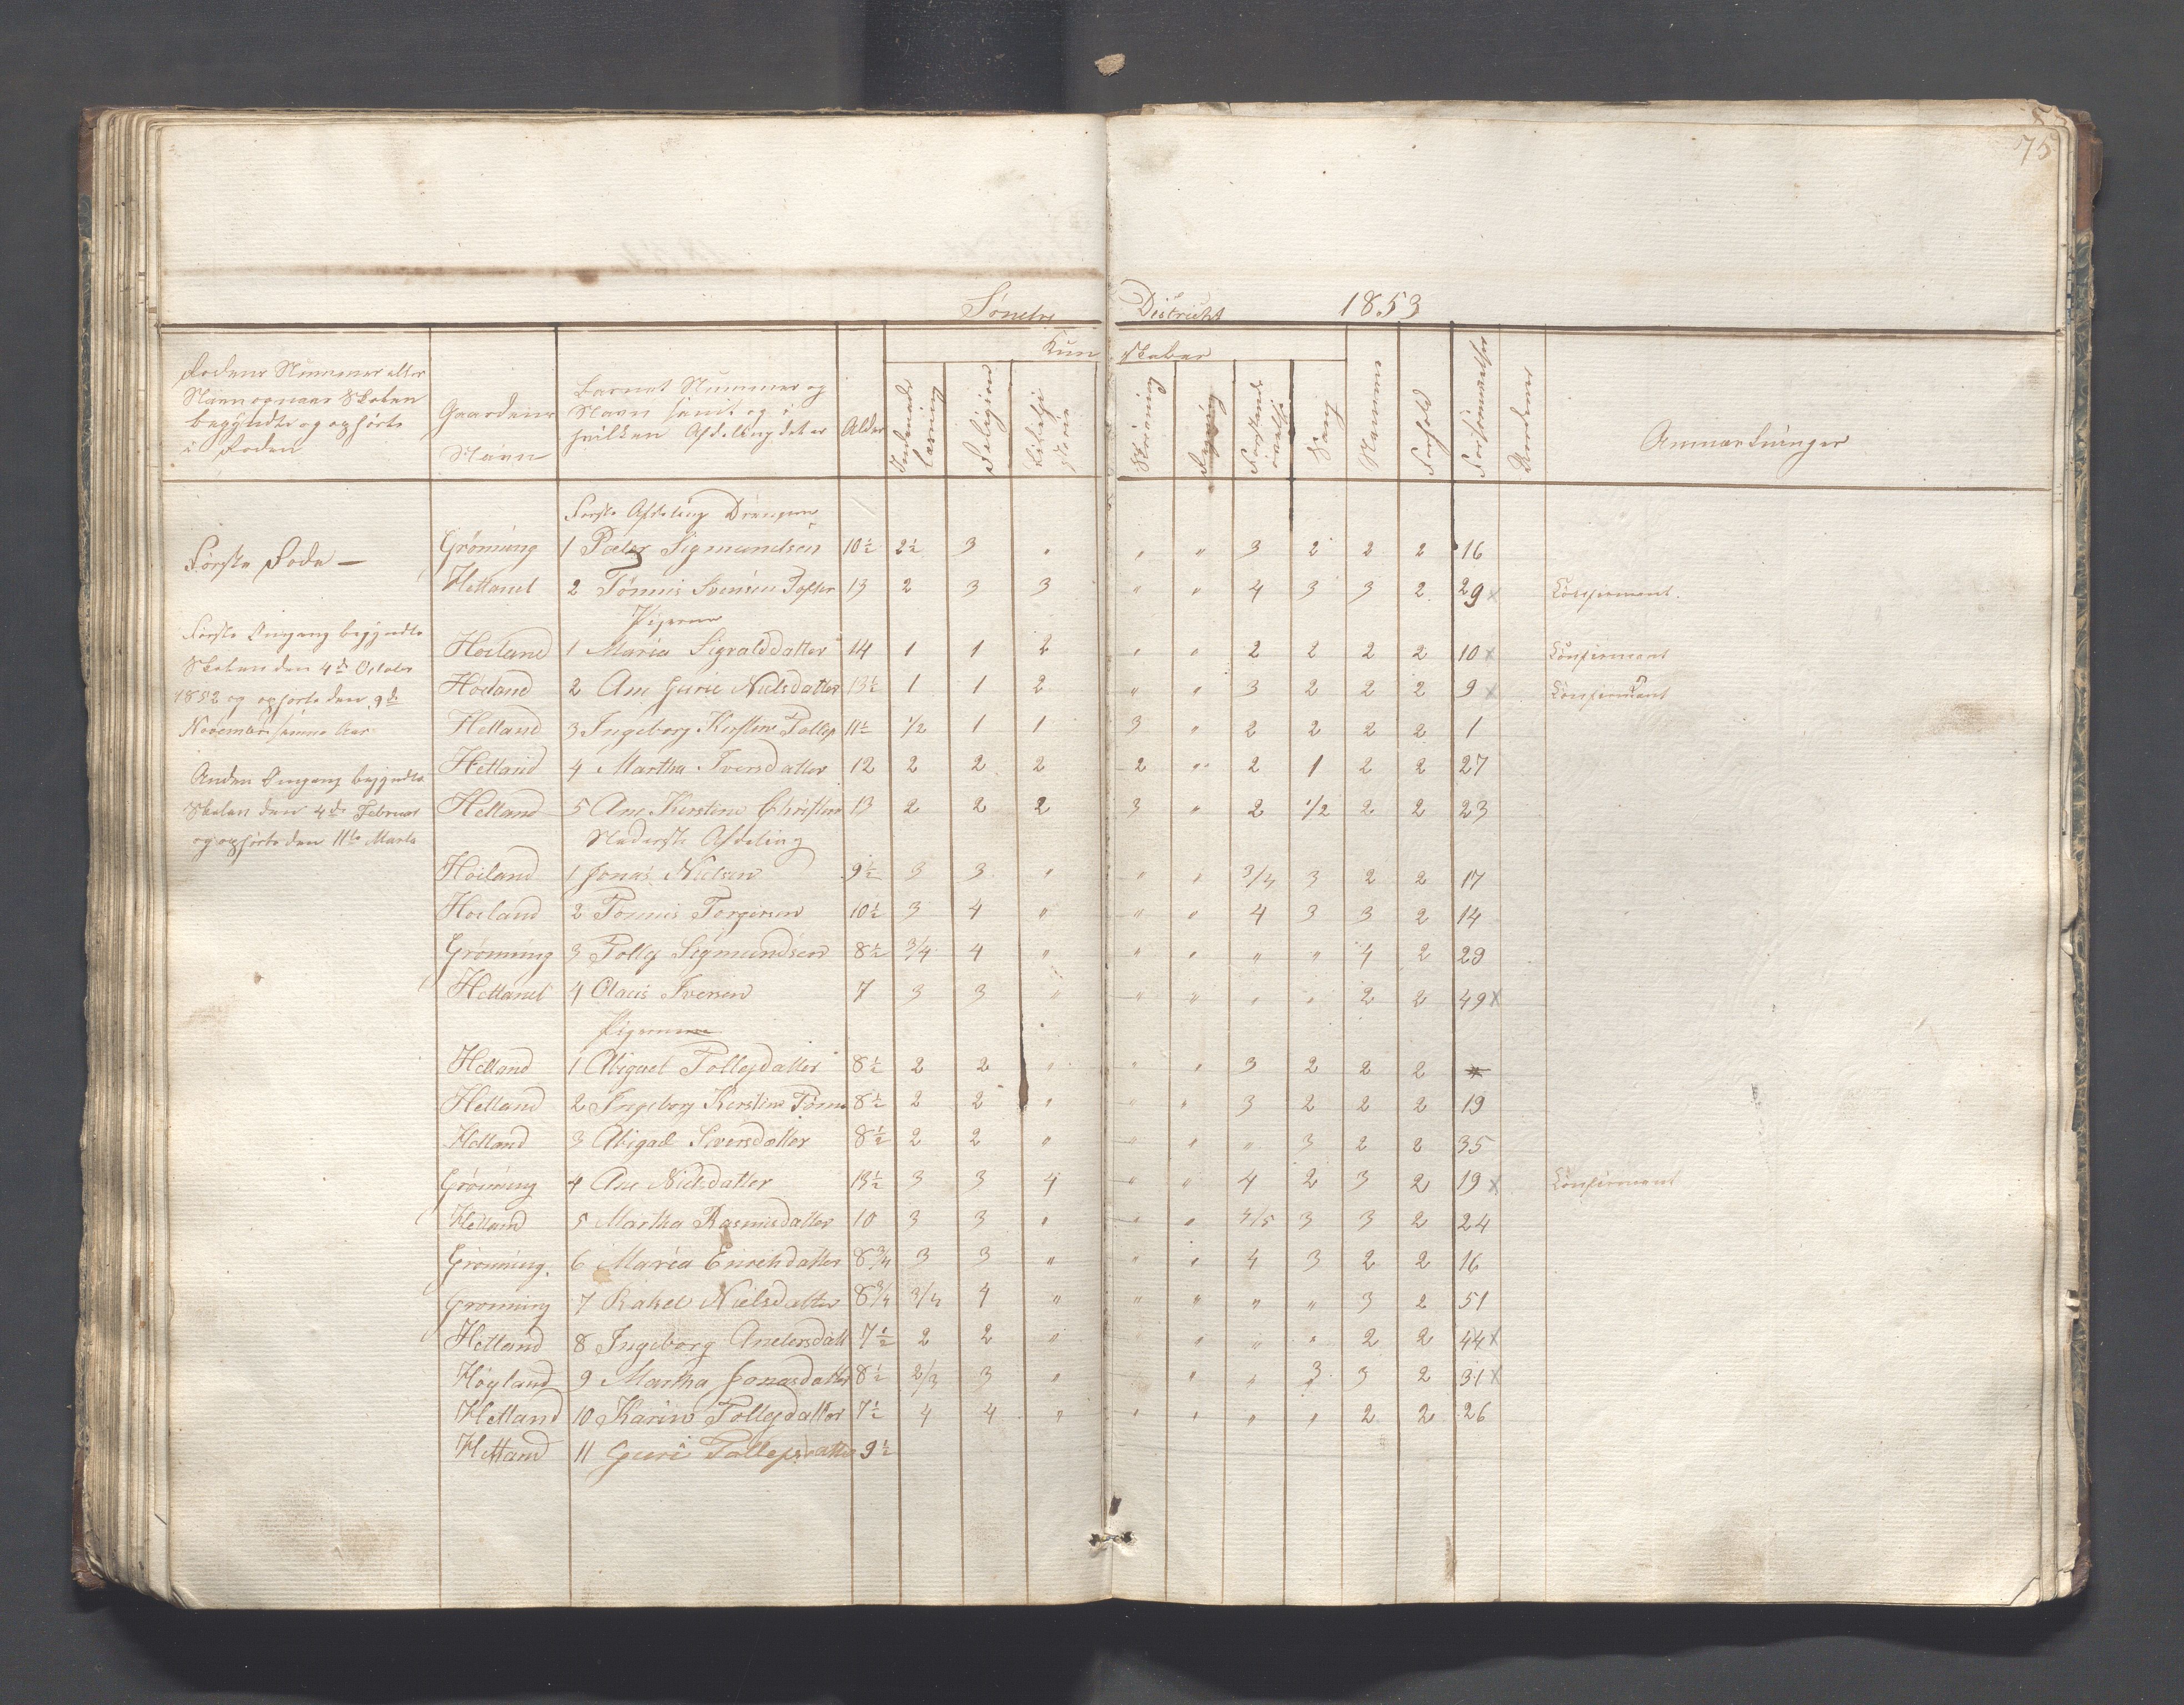 75
Söndre District 1853
Rodens Nummer eller
Navn og naar Skolen
begyndte og ophörte
i Roden
Gaardens
Navn
Barnets Nummer og
Navn samt og i
hvilken Afdeling det er
Alder
Kundskaber
Indenads
læsning
Religion
Bibelhi
storie
Skrivning
Regning
Forstands
øvelse
Sang
Nemme
Forhold
Forsømmelser
Anmærkninger
Første Afdeling Drengene
Første Rode —
Grönning 1 Peder Sigmundsen 10½ 2½ 3 " " " 3 2 2 2 16
Hetland 2 Tönnis Svensen 13 2 3 3 " " 4 3 3 2 29 x Confirmeret.
Pigerne
Første Omgang begyndte
Skolen den 4de October
1852 og ophörte den 9de
November samme Aar
Høiland 1 Maria Sigvalddatter 14 1 1 2 " " 2 2 2 2 10 x Confirmeret
Høiland 2 Ane Gurie Nielsdatter 13½ 1 1 2 " " 3 2 2 2 9 x Confirmeret
Hetland 3 Ingeborg Kirstine Tollefs 11½ 1/2 1 1 3 " 2 2 2 2 1
Anden Omgang begyndte
Skolen den 4de Februar
og ophörte den 11te Marts
Hetland 4 Martha Iversdatter 12 2 2 2 2 " 2 1 2 2 27
Hetland 5 Ane Kirstine Christine 13 2 2 2 3 " 2 1/2 2 2 23
Nederste Afdeling
Høiland 1 Jonas Nielsen 9½ 3 3 " " " 3/4 3 2 2 17
Høiland 2 Tönnis Torgersen 10½ 3 4 " " " 4 3 3 2 14
Grønning 3 Tollef Sigmundsen 8½ 3/4 4 " " " " " 4 2 29
Hetland 4 Olaus Iversen 7 3 3 " " " " " 2 2 49 x
Pigerne
Hetland 1 Abigael Tollefsdatter 8½ 2 2 " " " 3 2 2 2
Hetland 2 Ingeborg Kirstine Tönn 8½ 2 2 " " " 3 2 2 2 19
Hetland 3 Abigael Iversdatter 8½ 2 2 " " " " 3 2 2 35
Grönning 4 Ane Nielsdatter 13½ 3 3 4 " " 4 2 3 2 19 x Confirmeret
Hetland 5 Martha Rasmusdatter 10 3 3 " " " 4/5 3 3 2 24
Grönning. 6 Maria Enochdatter 8¾ 3 3 " " " 4 3 2 2 16
Grønning 7 Rakel Nielsdatter 8¾ 3/4 4 " " " " " 3 2 51
Hetland 8 Ingeborg Andersdatt 7½ 2 2 " " " " 2 2 44 x
Höyland 9 Martha Jonasdatter 8½ 2/3 3 " " " 3 3 2 31 x
Hetland 10 Karine Tollefsdatter 7½ 4 4 " " " " " 2 2 26
Hetland 11 Guri Tollefsdatter 9½